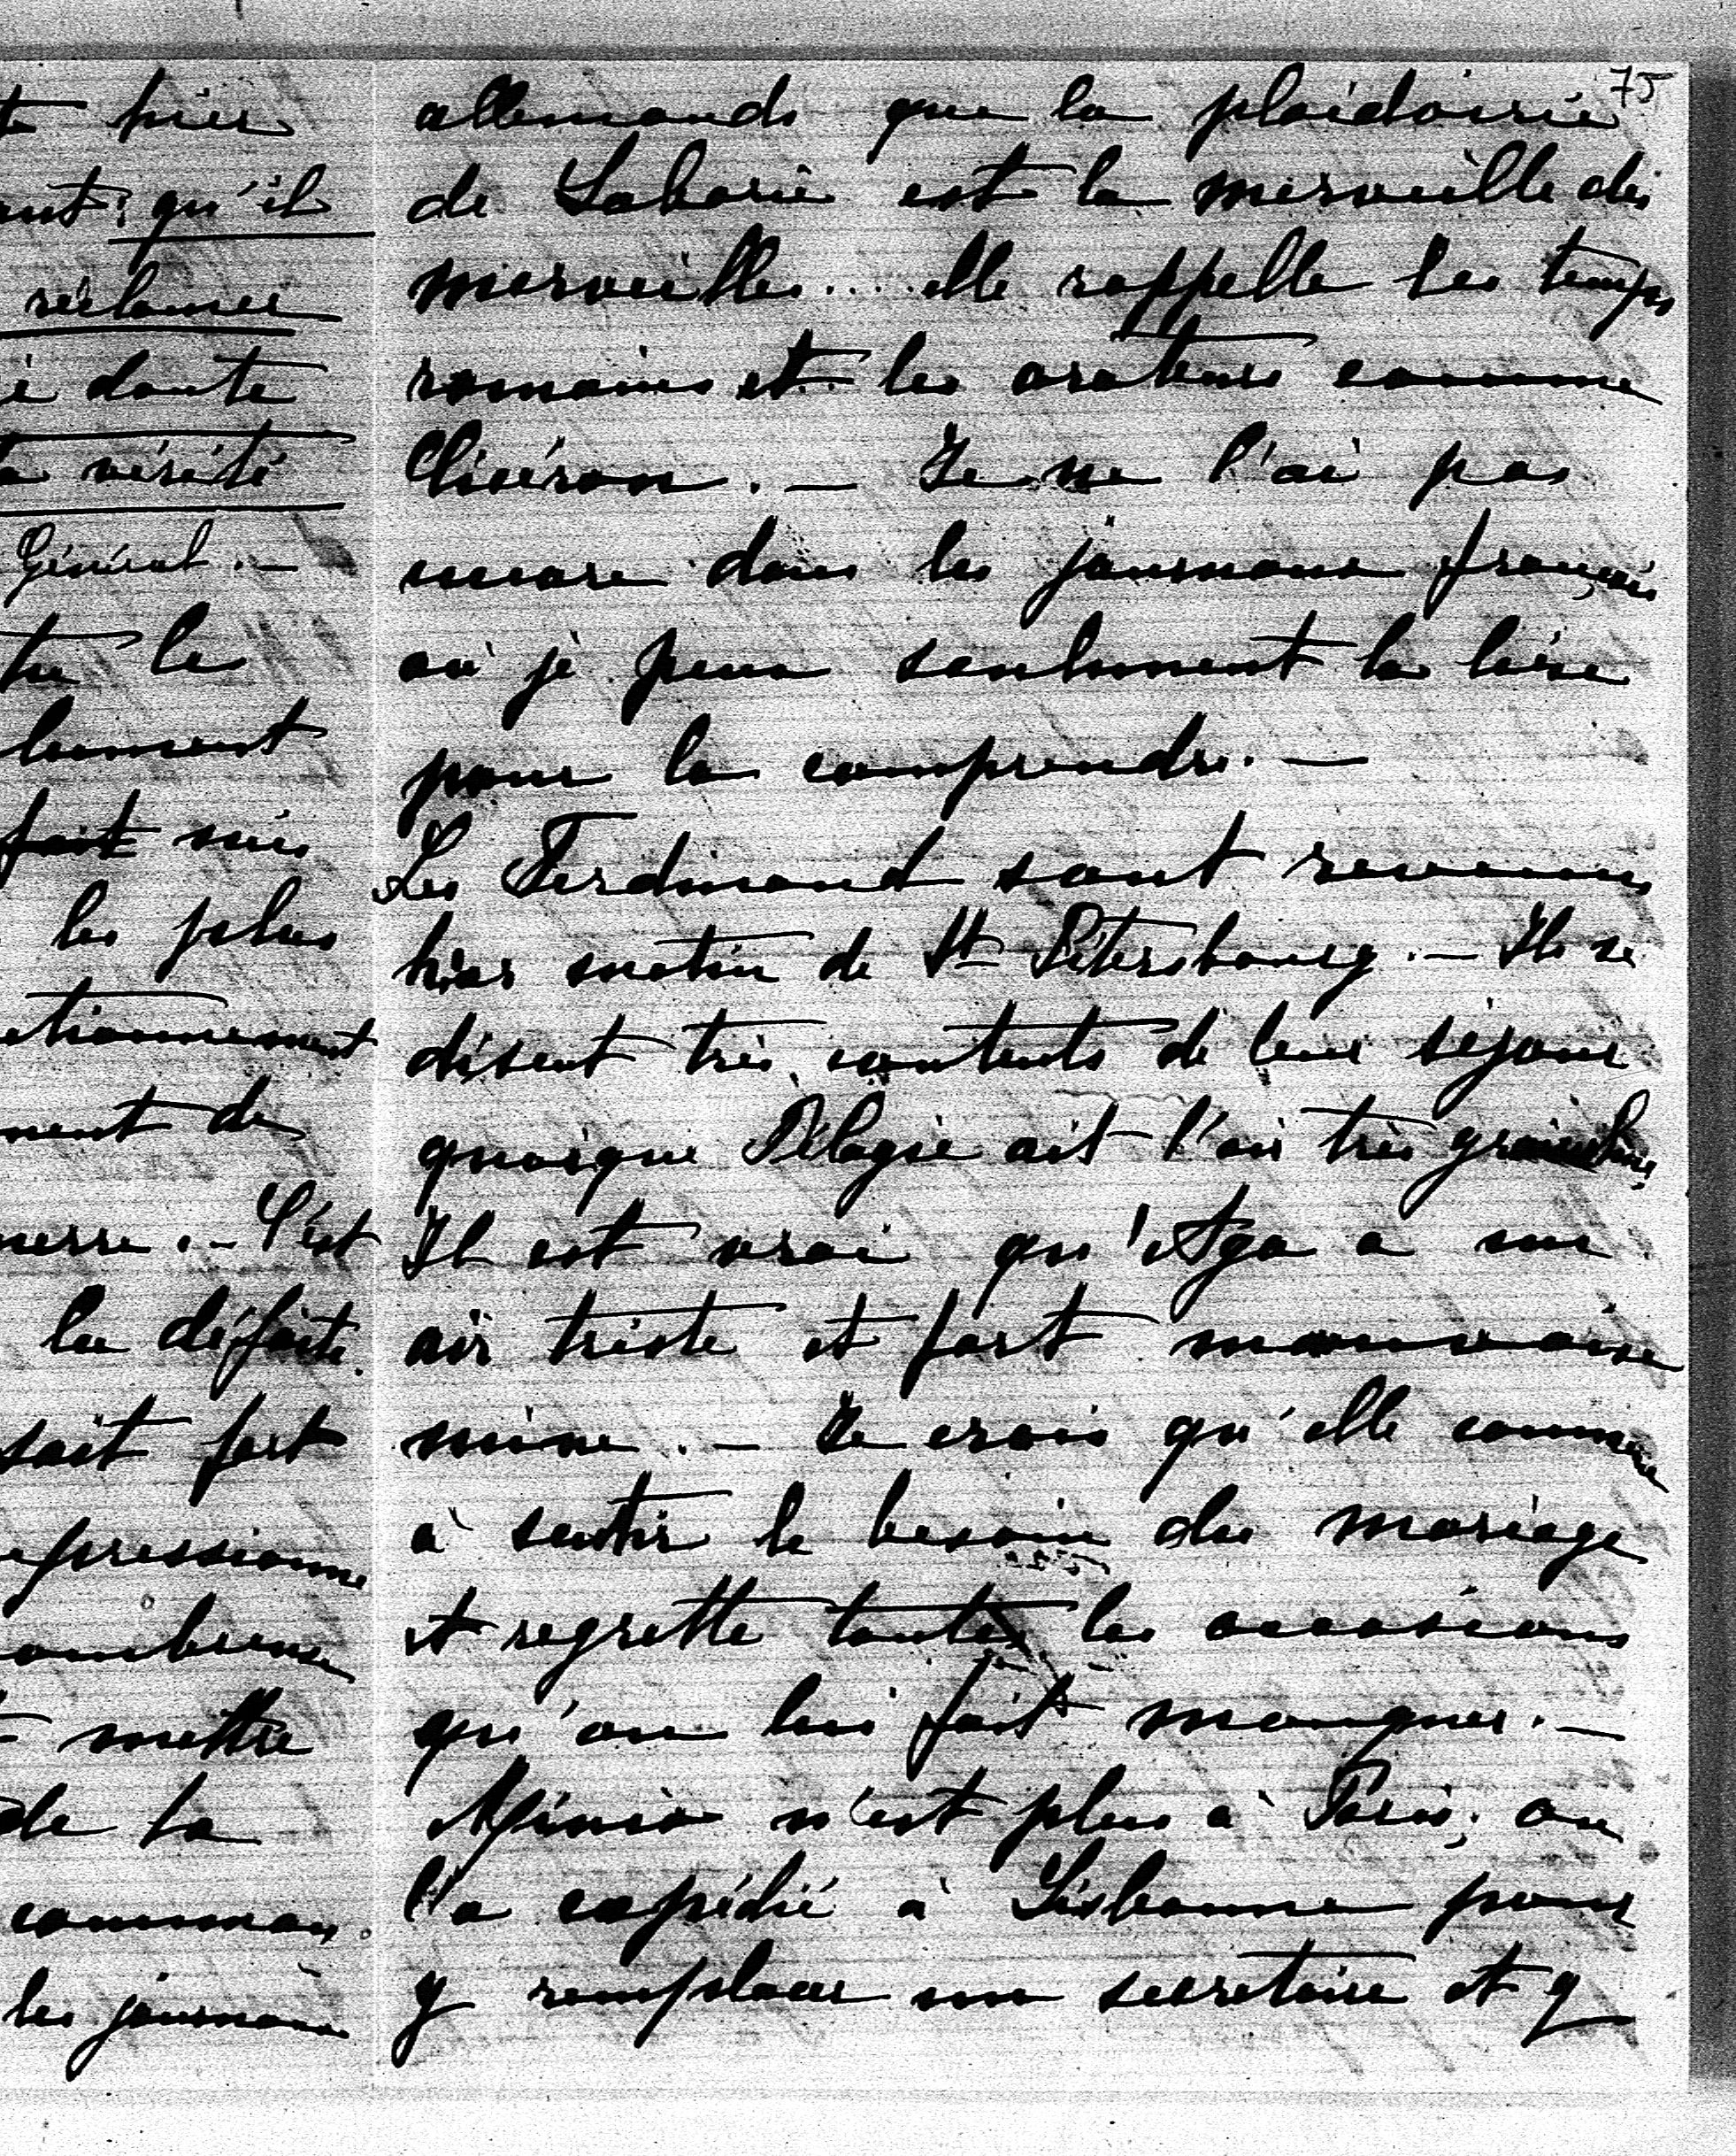 prier
qu'il
réclamer
doute
vérité
Général. —
le
fait
les plus
de
C'est
la défaite.
sait fort
mettre
de la
les journaux
75
allemands que la plaidoirie
de Laborie est la merveille des
merveilles.... elle rappelle les temps
romains et les orateurs comme
Cicéron. — Je ne l'ai pas
encore dans les journaux français
où je peux seulement la lire
pour la comprendre. —
Les Ferdinand sont revenus
hier matin de St Pétersbourg. — Ils se
disent très contents de leur séjour
quoique Pélagie ait l'air très
Il est vrai qu'Aga a une
air triste et fort mauvaise
mine. — Je crois qu'elle commence
à sentir le besoin du mariage
et regrette toutes les occasions
qu'on lui fait manquer. —
n'est plus à Paris; on
l'a expédié à Lisbonne pour
y remplacer un secrétaire et y